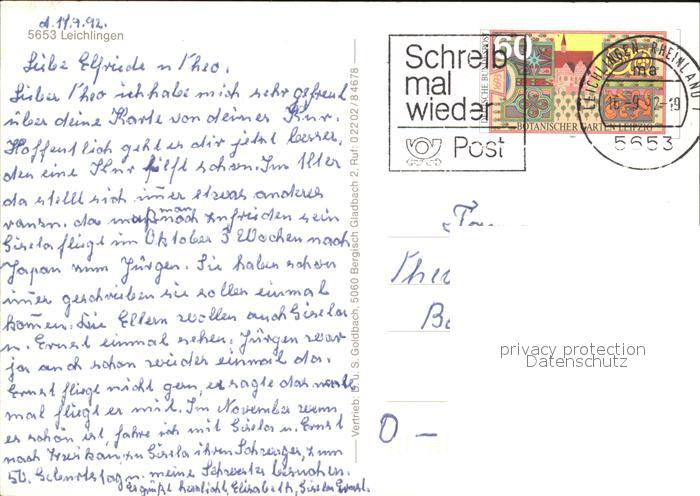 d. 14.9.92.
5653 Leichlingen
Liebe Elfriede u Theo.
Lieber Theo ich habe mich sehr gefreut
über deine Karte von deiner Kur.
Hoffentlich geht es dir jetzt besser,
den eine Kur hilft schon. Im Alter
da stellt sich im̄er etwas anderes
raus. da muß man noch zufrieden sein
Gisela fliegt im Oktober 3 Wochen nach
Japan zum Jürgen. Sie haben schon
im̄er geschrieben sie sollen einmal
kom̄en. Die Eltern wollen auch Gisela
u. Ernst einmal sehen. Jürgen war
ja auch schon wieder einmal da.
Ernst fliegt nicht gern, er sagte das nächste
mal fliegt er mit. Im November wenn
es schön ist, fahre ich mit Gisela u. Ernst
nach Zwickau, zu Gisela ihren Schwager, zum
50. Geburtstag u. meine Schwester besuchen.
Es grüßt herzlichst, Elisabeth, Gisela Ernst.
Vertrieb: B. u. S. Goldbach, 5060 Bergisch Gladbach 2, Ruf: 0 22 02 / 8 46 78
Schreib
mal
wieder
Post
60
DEUTSCHE BUNDESPOST
BOTANISCHER GARTEN LEIPZIG
LEICHLINGEN, RHEINLAND
ma
16.-9.92-19
5653
Theo
O –
privacy protection
Datenschutz